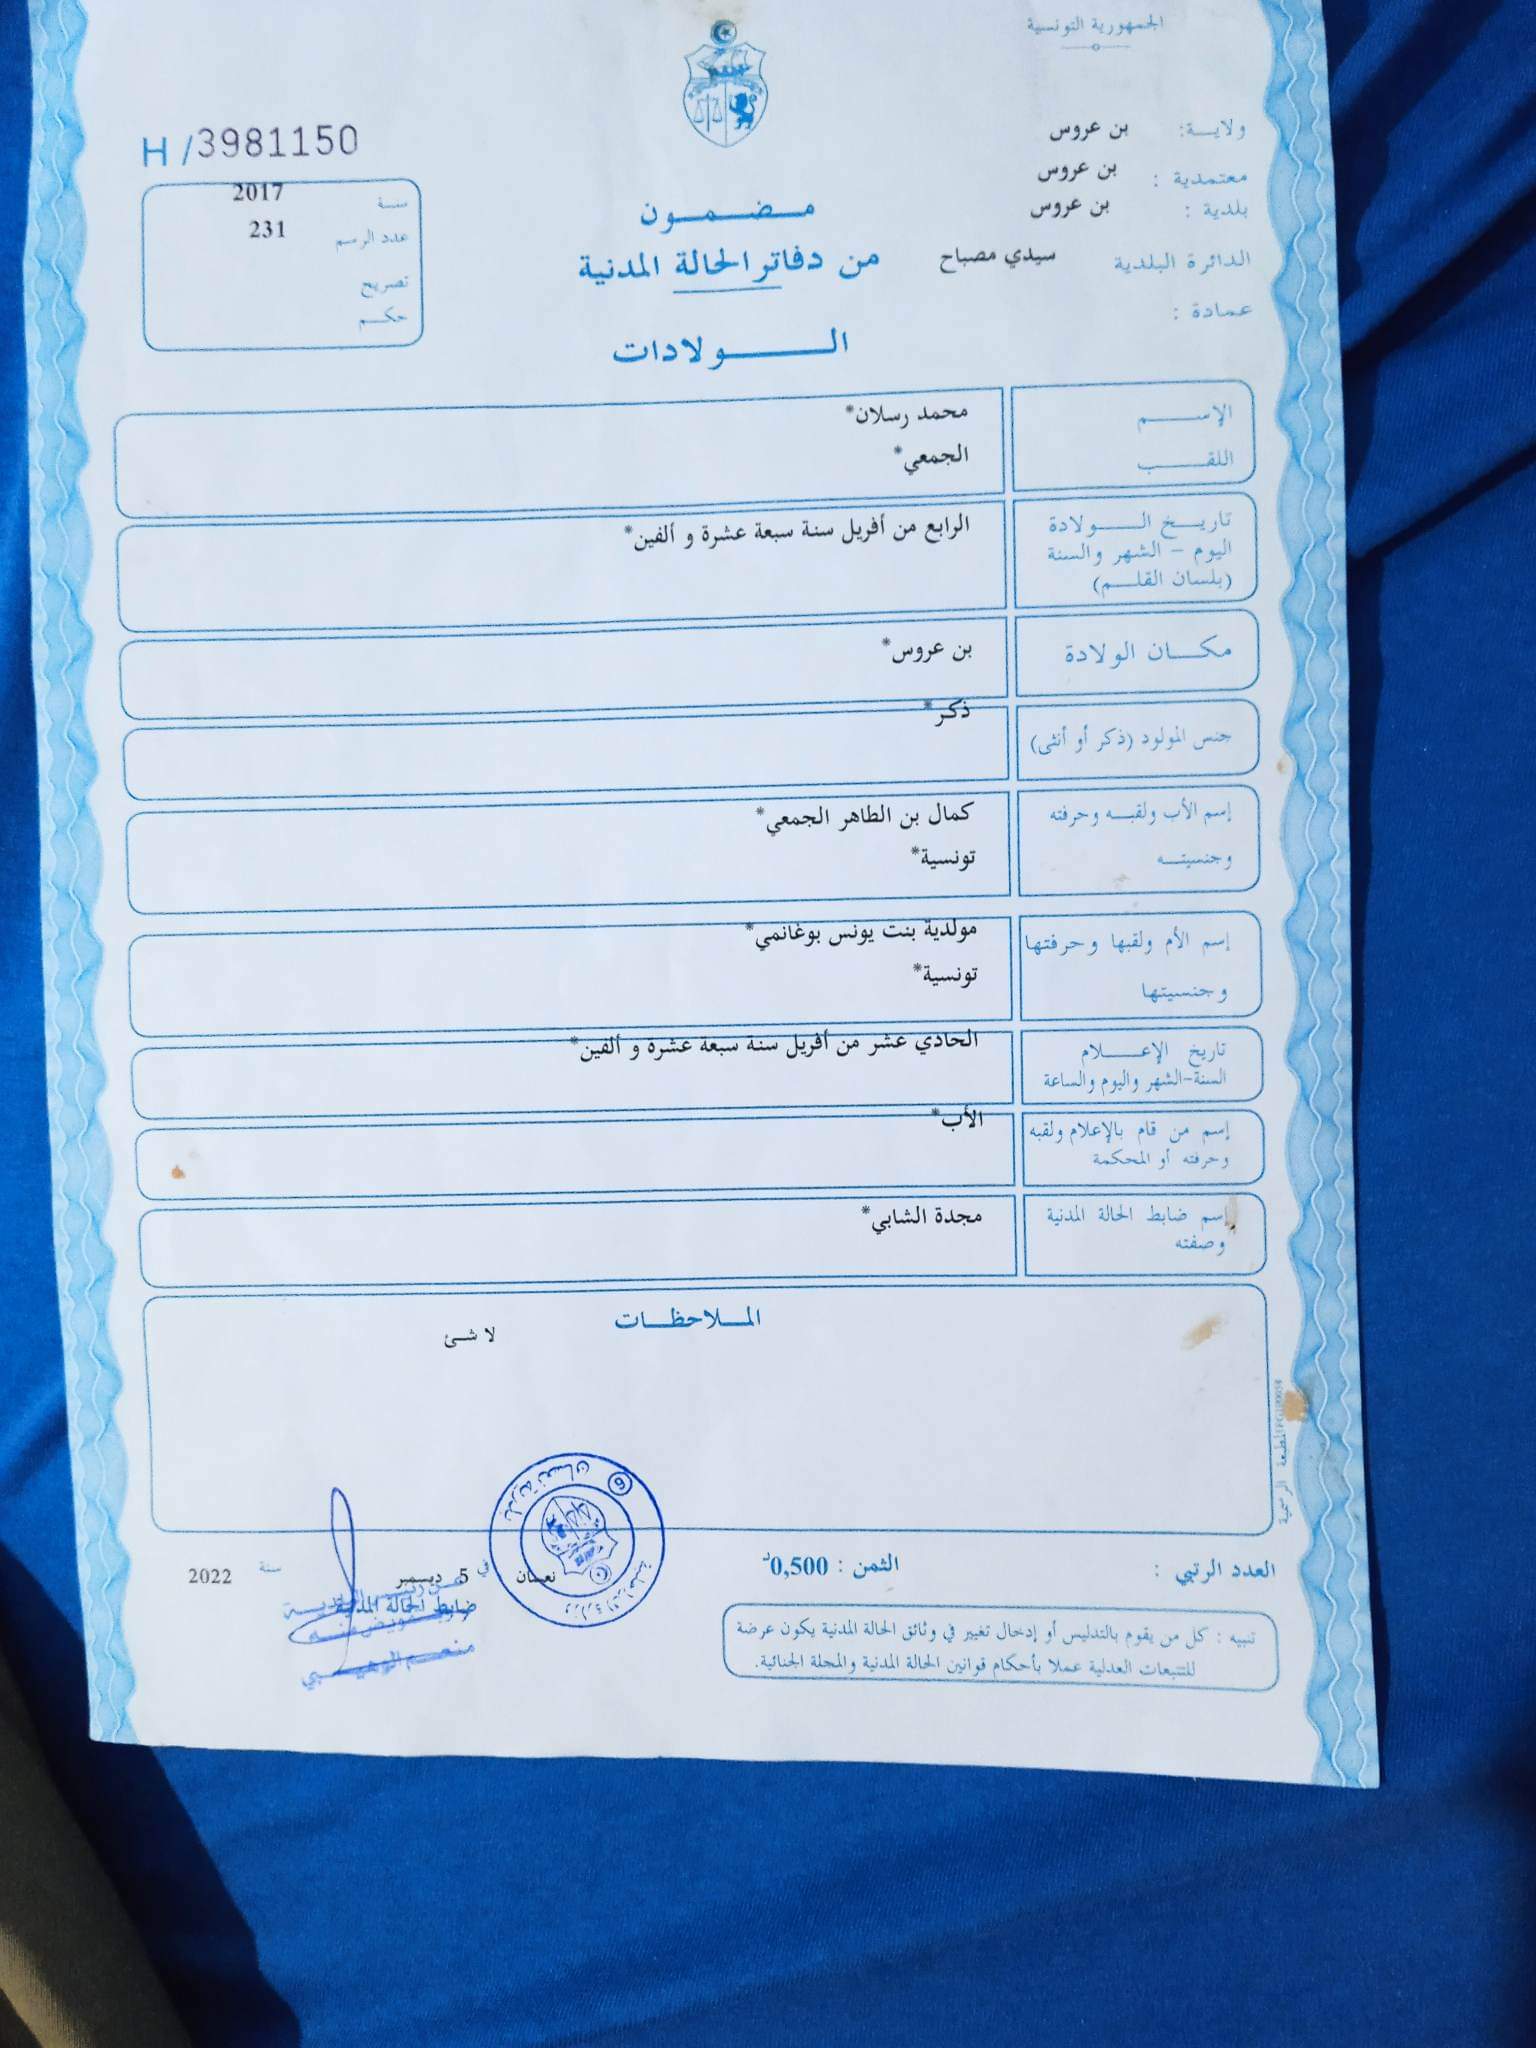 الجمهورية التونسية
ولاية: بن عروس
معتمدية : بن عروس
بلدية : بن عروس
الدائرة البلدية سيدي مصباح
عمادة :
H/3981150
سنة 2017
عدد الرسم 231
تصريح
حكم
مضمون
من دفاتر الحالة المدنية
الولادات
الإسم محمد رسلان*
اللقب الجمعي*
تاريخ الولادة
اليوم - الشهر والسنة
(بلسان القلم)
الرابع من أفريل سنة سبعة عشرة و ألفين*
مكان الولادة بن عروس*
جنس المولود (ذكر أو أنثى) ذكر*
إسم الأب ولقبه وحرفته كمال بن الطاهر الجمعي*
وجنسيته تونسية*
إسم الأم ولقبها وحرفتها مولدية بنت يونس بوغانمي*
وجنسيتها تونسية*
تاريخ الإعلام الحادي عشر من أفريل سنة سبعة عشرة و ألفين*
السنة-الشهر واليوم والساعة
إسم من قام بالإعلام ولقبه الأب*
وحرفته أو المحكمة
إسم ضابط الحالة المدنية مجدة الشابي*
وصفته
الملاحظات
لا شئ
المطبعة الرسمية
بلدية نعسان
6
العدد الرتبي :
الثمن : 0,500د
نعسان في 5 ديسمبر سنة 2022
ضابط الحالة المدنية
عن رئيس البلدية
وبتفويض منه
منعم الوهيبي
تنبيه : كل من يقوم بالتدليس أو إدخال تغيير في وثائق الحالة المدنية يكون عرضة
للتتبعات العدلية عملا بأحكام قوانين الحالة المدنية والمجلة الجنائية.